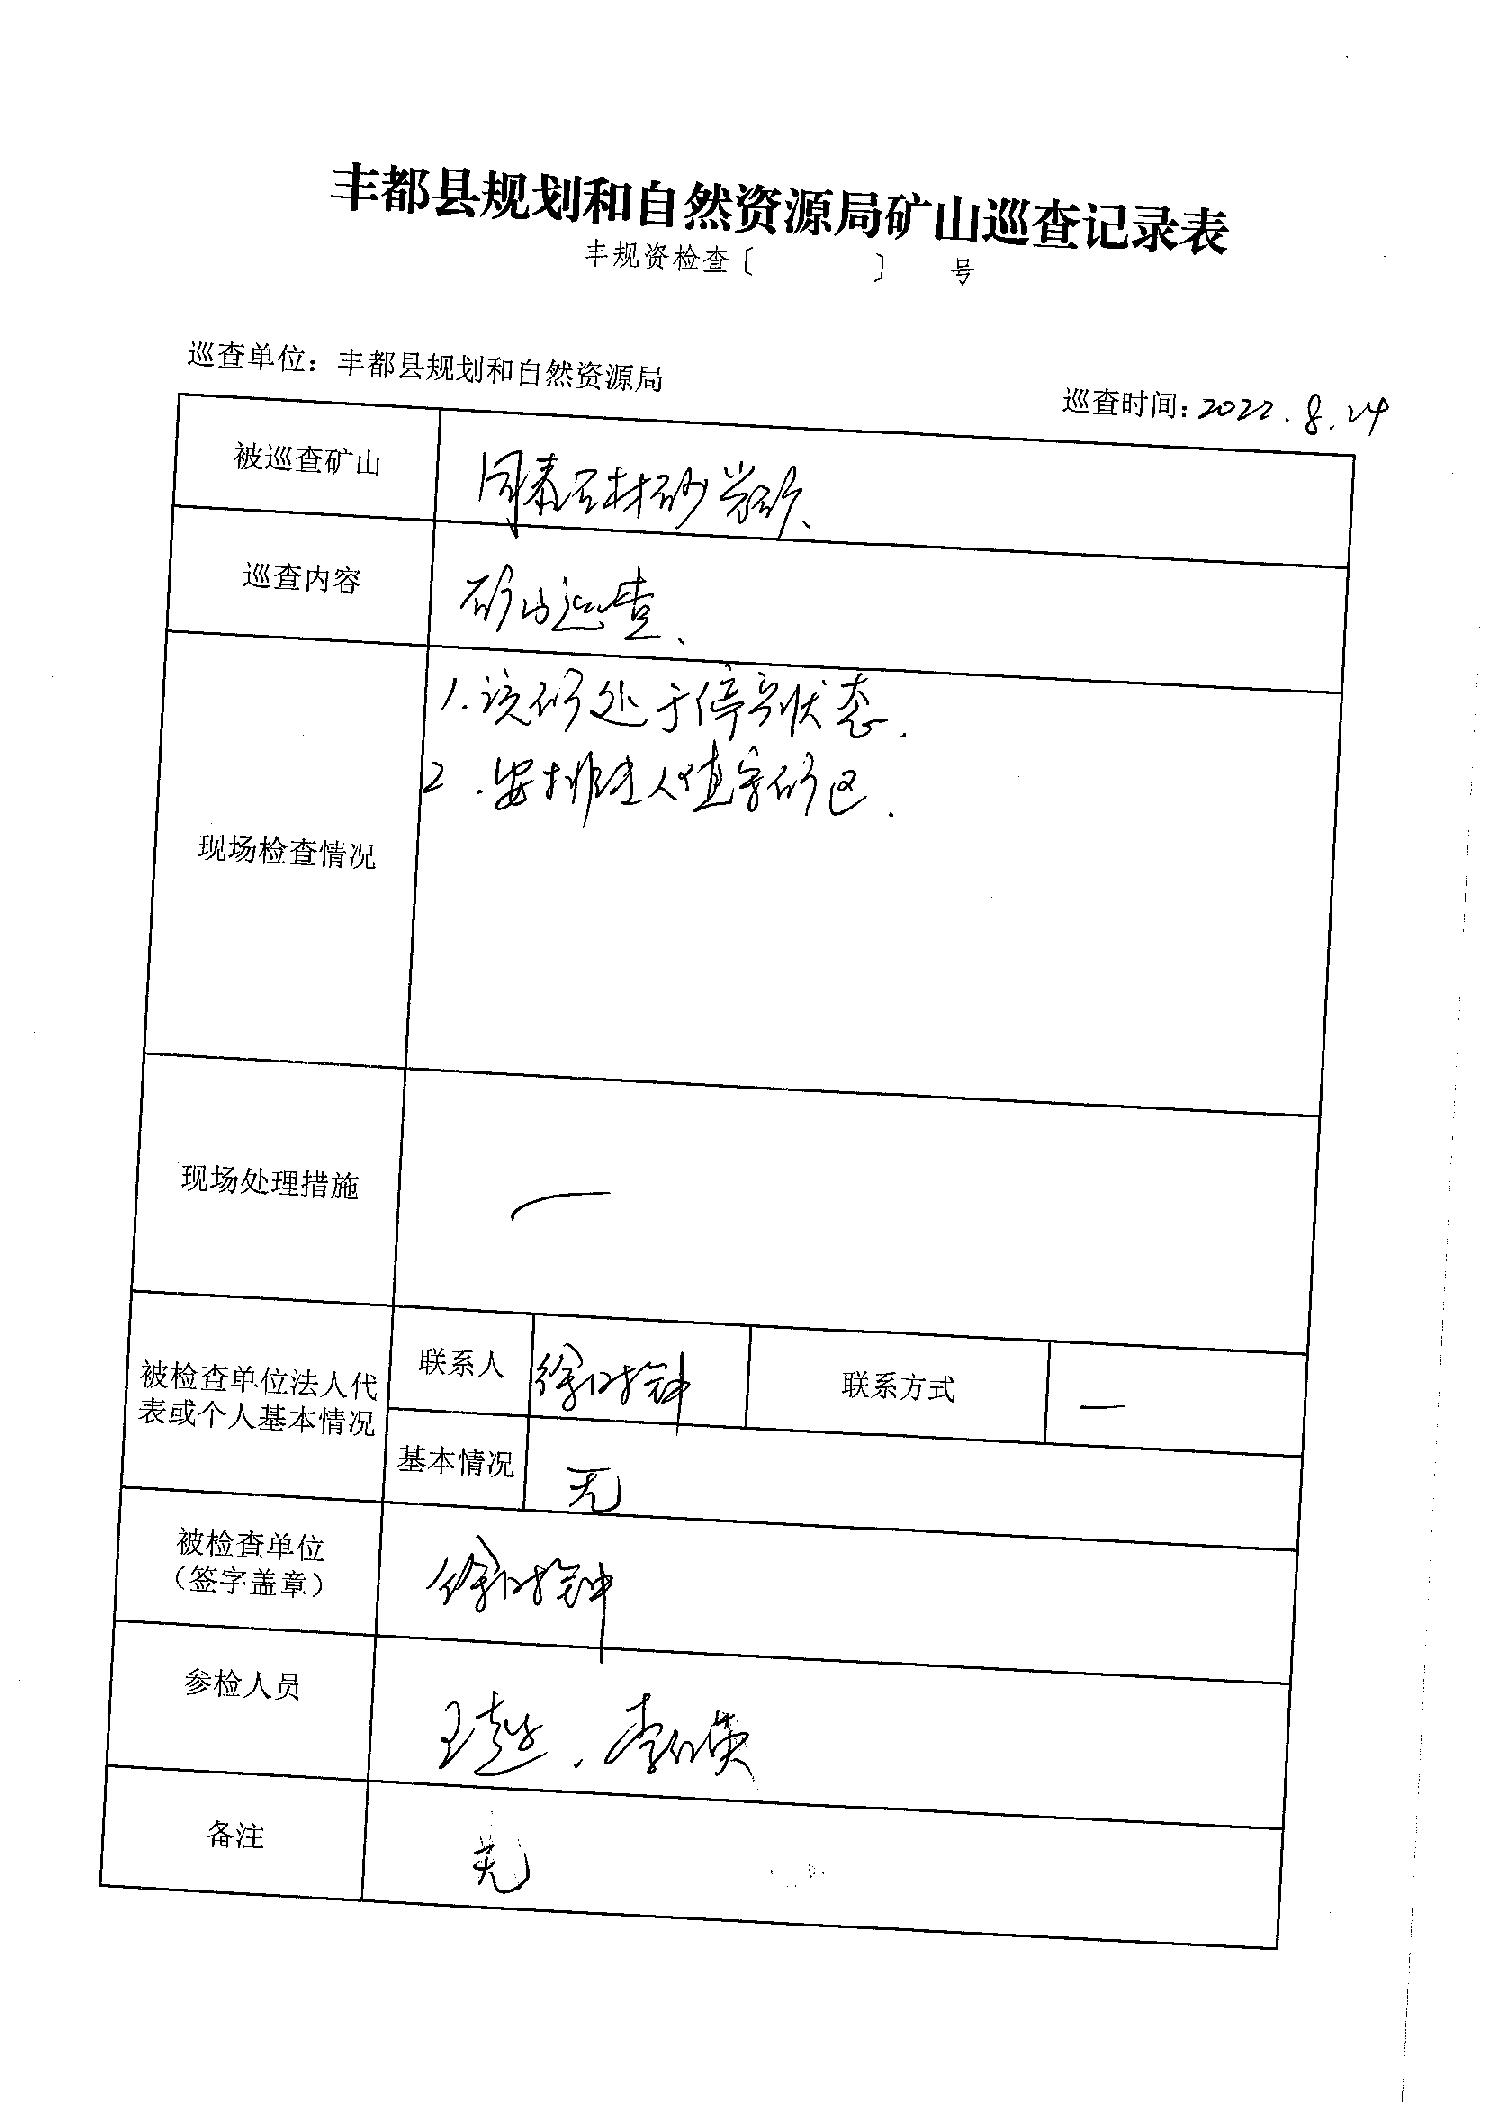 丰都县规划和自然资源局矿山巡查记录表
丰规资检查〔 〕 号
巡查单位：丰都县规划和自然资源局
巡查时间：2022.8.24
被巡查矿山 同泰石材砂岩矿、
巡查内容 矿山巡查、
现场检查情况
1.该矿处于停产状态.
2.安排专人值守矿区.
现场处理措施 一
被检查单位法人代
表或个人基本情况
联系人 徐时钟 联系方式 一
基本情况 无
被检查单位
（签字盖章）
徐时钟
参检人员 王 . 李
备注 无